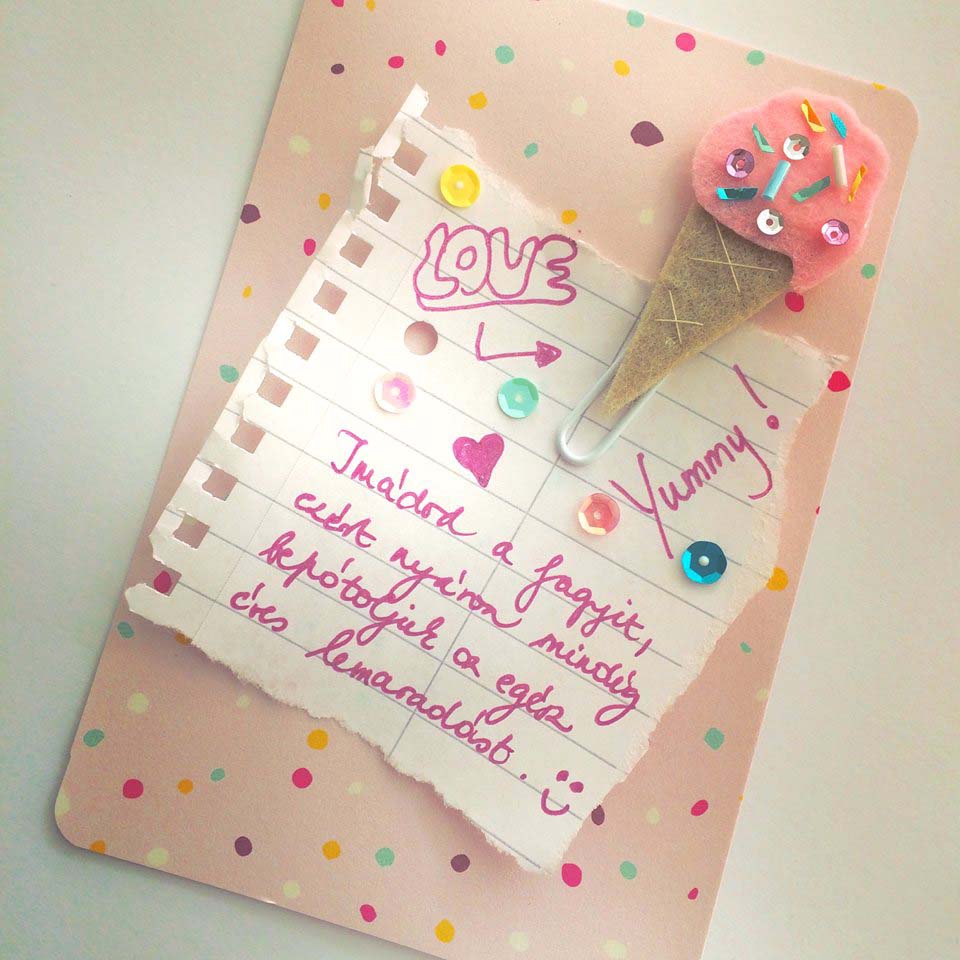 LOVE
Yummy!
Imádod a fagyit,
ezért nyáron mindég
bepótoljuk az egész
éves lemaradást.